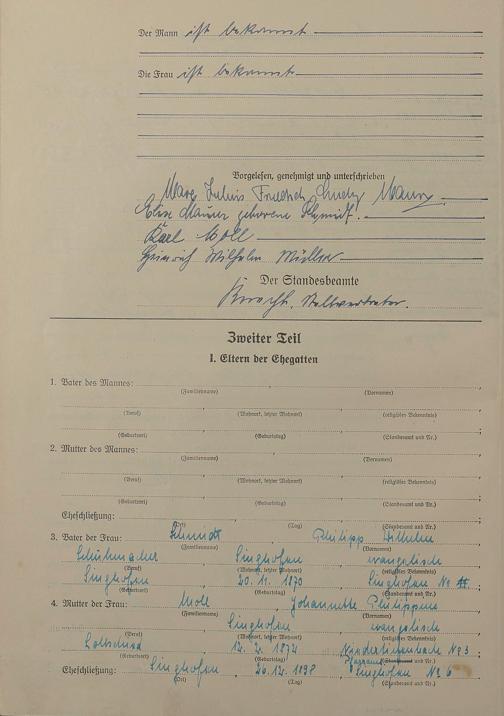 Der Mann ist bekannt
Die Frau ist bekannt
Vorgelesen, genehmigt und unterschrieben
Julius Friedrich Maurer
Else Maurer geborene Schmidt.
Karl Moll
Heinrich Wilhelm Müller
Der Standesbeamte
Stellvertreter.
Zweiter Teil
I. Eltern der Ehegatten
1. Vater des Mannes:
(Familienname) (Vornamen)
(Beruf) (Wohnort, letzter Wohnort) (religiöses Bekenntnis)
(Geburtsort) (Geburtstag) (Standesamt und Nr.)
2. Mutter des Mannes:
(Familienname) (Vornamen)
(Beruf) (Wohnort, letzter Wohnort) (religiöses Bekenntnis)
(Geburtsort) (Geburtstag) (Standesamt und Nr.)
Eheschließung:
(Ort) (Tag) (Standesamt und Nr.)
3. Vater der Frau: Schmidt Philipp Wilhelm
(Familienname) (Vornamen)
Schuhmacher Singhofen evangelisch
(Beruf) (Wohnort, letzter Wohnort) (religiöses Bekenntnis)
Singhofen 20.11.1870 Singhofen No
(Geburtsort) (Geburtstag) (Standesamt und Nr.)
4. Mutter der Frau: Moll Johannette Philippine
(Familienname) (Vornamen)
Singhofen evangelisch
(Beruf) (Wohnort, letzter Wohnort) (religiöses Bekenntnis)
12.2.1874 No 3
(Geburtsort) (Geburtstag) (Standesamt und Nr.)
Eheschließung: Singhofen 26.12.1898 Singhofen No 6
(Ort) (Tag) (Standesamt und Nr.)